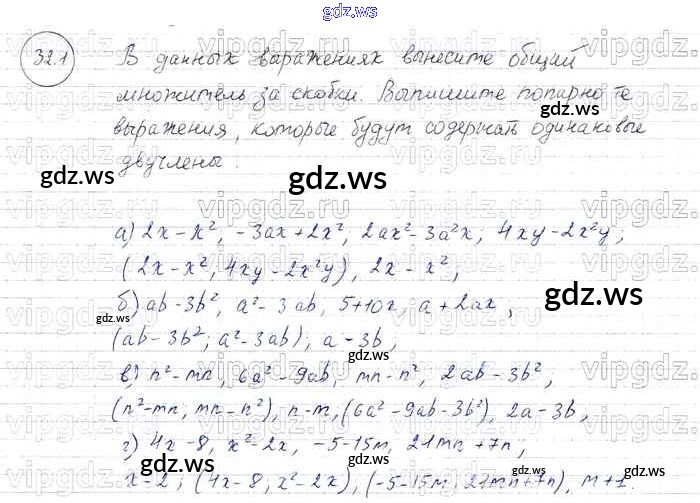 gdz.ws
32.1 В данных выражениях вынесите общий
множитель за скобки. Выпишите попарно те
выражения, которые будут содержать одинаковые
двучлены:
а) 2x-x², -3ax+2x², 2ax²-3a²x; 4xy-2x²y;
(2x-x², 4xy-2x²y), 2x-x²,
б) ab-3b², a²-3ab, 5+10x, a+2ax,
(ab-3b²; a²-3ab); a-3b,
в) n²-mn, 6a²-9ab, mn-n², 2ab-3b²,
(n²-mn, mn-n²), n-m, (6a²-9ab-3b²), 2a-3b,
г) 4x-8, x²-2x, -5-15m, 21mn+7n,
x-2; (4x-8, x²-2x), (-5-15m, 21mn+7n), m+1.